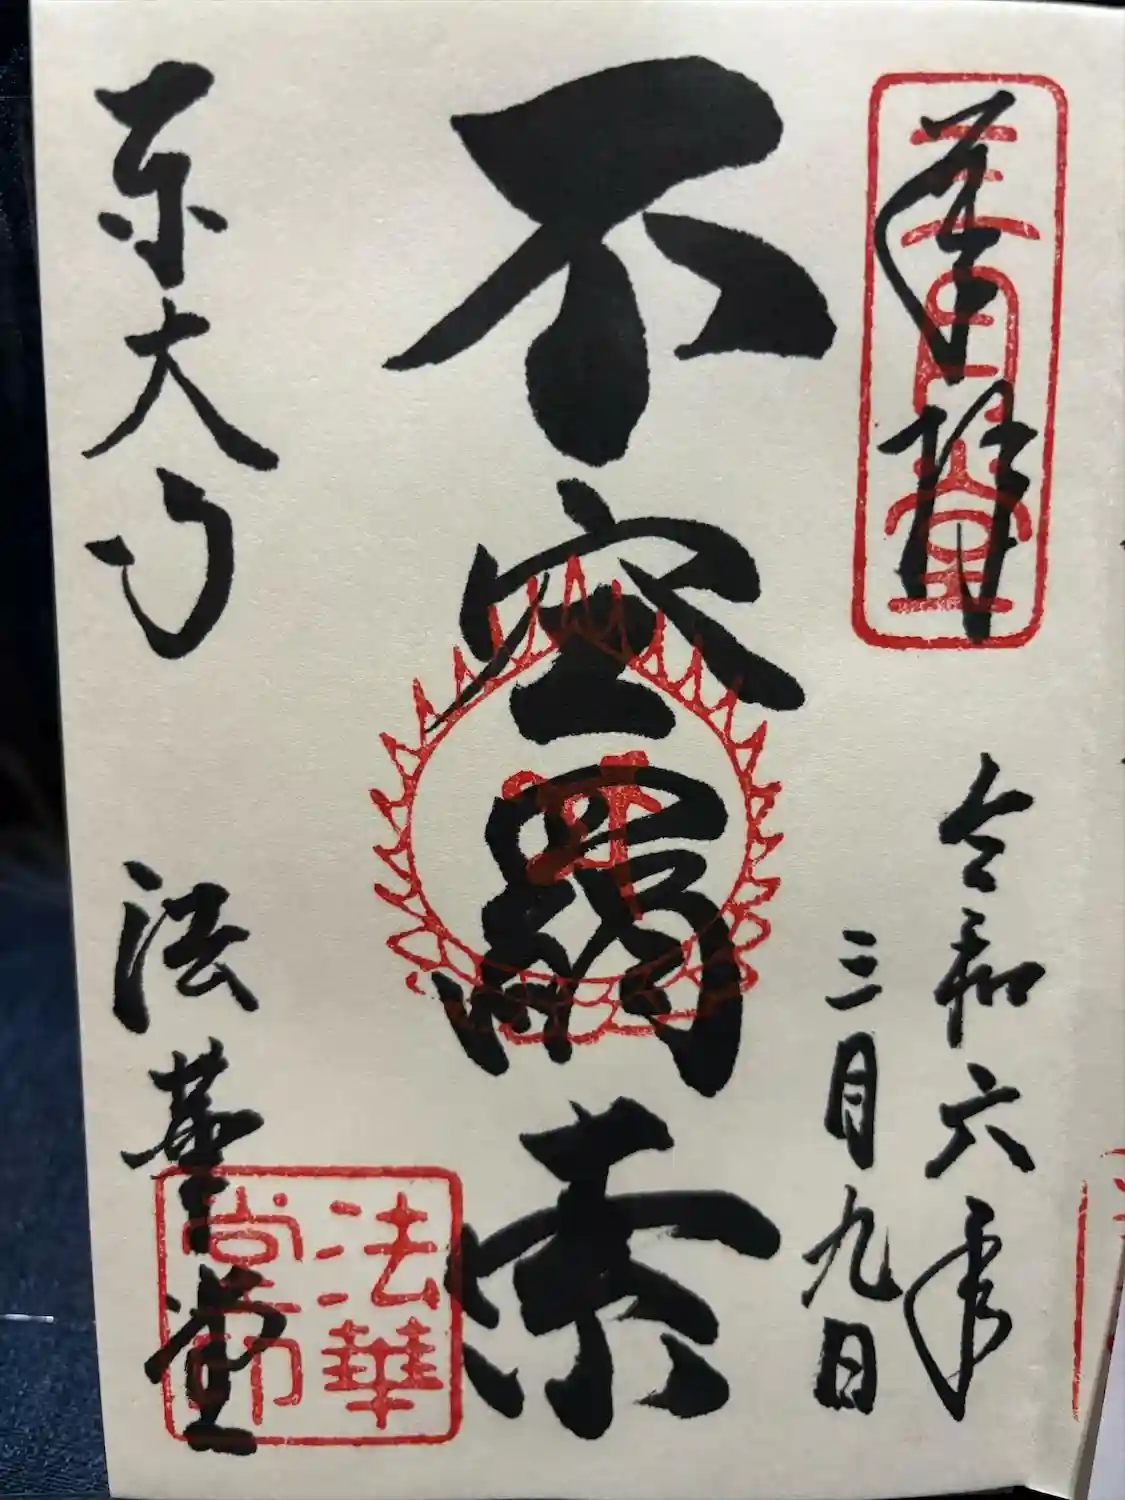 奉拝
三月堂
令和六年
三月九日
不空羂索
東大寺 法華堂
法華
堂印